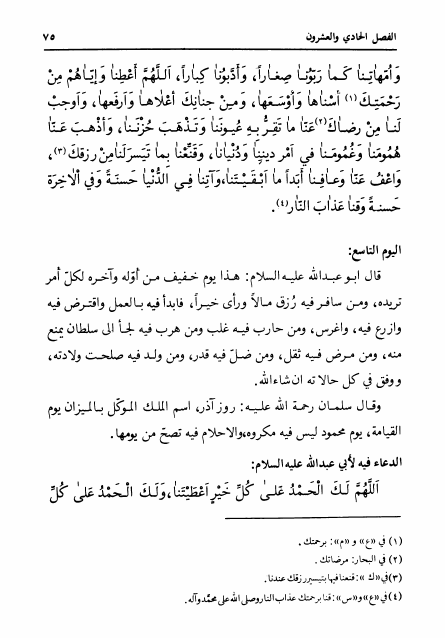 الفصل الحادي والعشرون ٧٥
وَاُمَّهاتِنا كَـما رَبَّوْنا صِغاراً، وَاَدَّبُوْنا كِباراً، اَللّـهُمَّ اَعْطِنا وَاِيّاهُمْ مِنْ
رَحْمَتِكَ(١) اَسْناها وَاَوْسَعَها، وَمِـنْ جِنانِكَ اَعْلاها وَاَرْفَعَها، وَاَوْجِبْ
لَنا مِنْ رِضاكَ(٢)عَنّا ما تَقِرُّ بِهِ عُيونَنا وَتُذْهِبَ حُزْنَنا، وَاَذْهِبْ عَنّا
هُمُومَنا وَغُمُومَنا في اَمْرِ دينِنا وَدُنْيانا، وَقَنِّعْنا بِما تَيَسَّرَلَنامِنْ رِزقِكَ(٣)،
وَاعْفُ عَنّا وَعـافِـنا اَبَداً ما اَبْقَـيْتَنا،وَآتِنا فِـي الدُّنْيا حَسَنةً وَفي اْلآخِرَةِ
حَسنةً وَقِنا عَذابَ النّارِ(٤).
اليوم التاسع:
قال ابو عبدالله عليه السلام: هـذا يوم خفيف مـن أوّله وآخره لكلّ أمر
تريده، ومـن سافر فيه رُزق مـالاً ورأى خيـراً، فابدأ فيه بـالعمل واقترض فيه
وازرع فيه، واغرس، ومن حارب فيـه غلب ومن هرب فيه لجـأ الى سلطان يمنع
منه، ومن مـرض فيـه ثقل، ومن ضـلّ فيه قدر، ومن ولـد فيه صلحت ولادته،
ووفق في كل حالاته ان شاءالله.
وقـال سلمان رحمة الله عليـه: روز آذر، اسم الملك الموكّل بـالميزان يوم
القيامة، يوم محمود ليس فيه مكروه،والاحلام فيه تصحّ من يومها.
الدعاء فيه لأبي عبدالله عليه السلام:
اَللّهُمَّ لَـكَ الْحَـمْدُ عَلـىٰ كُلِّ خَيْرٍ اَعْطَيْتَنا،وَلَـكَ الْحَـمْدُ عَلىٰ كُلِّ
(١) في «ع» و «م»: برحمتك.
(٢) في البحار: مرضاتك.
(٣)في«ك»:قنعنا فيها بتيسير رزقك عندنا.
(٤) في «ع»و«س»:قنا برحمتك عذاب النار وصلى الله على محمّد وآله.